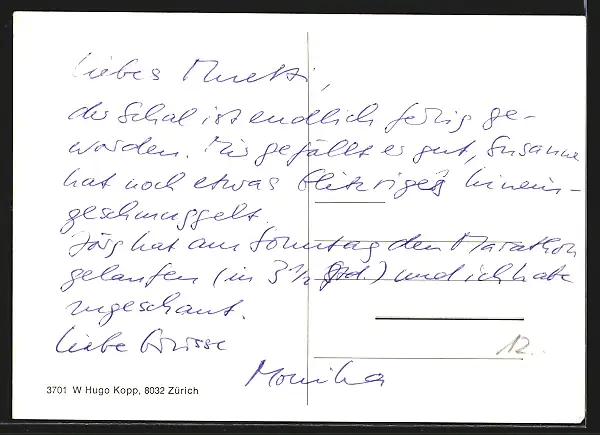 liebes Muetti,
der Schal ist endlich fertig ge-
worden. Mir gefällt es gut, Susanne
hat noch etwas Glitzriges hinein-
geschmuggelt.
Jörg hat am Sonntag den Marathon
gelaufen (in 3 1/2 Std.) und ich habe
zugeschaut.
liebe Grüsse
Monika
12.
3701 W Hugo Kopp, 8032 Zürich